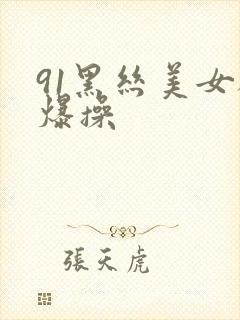 91黑丝美女
爆操
張天虎